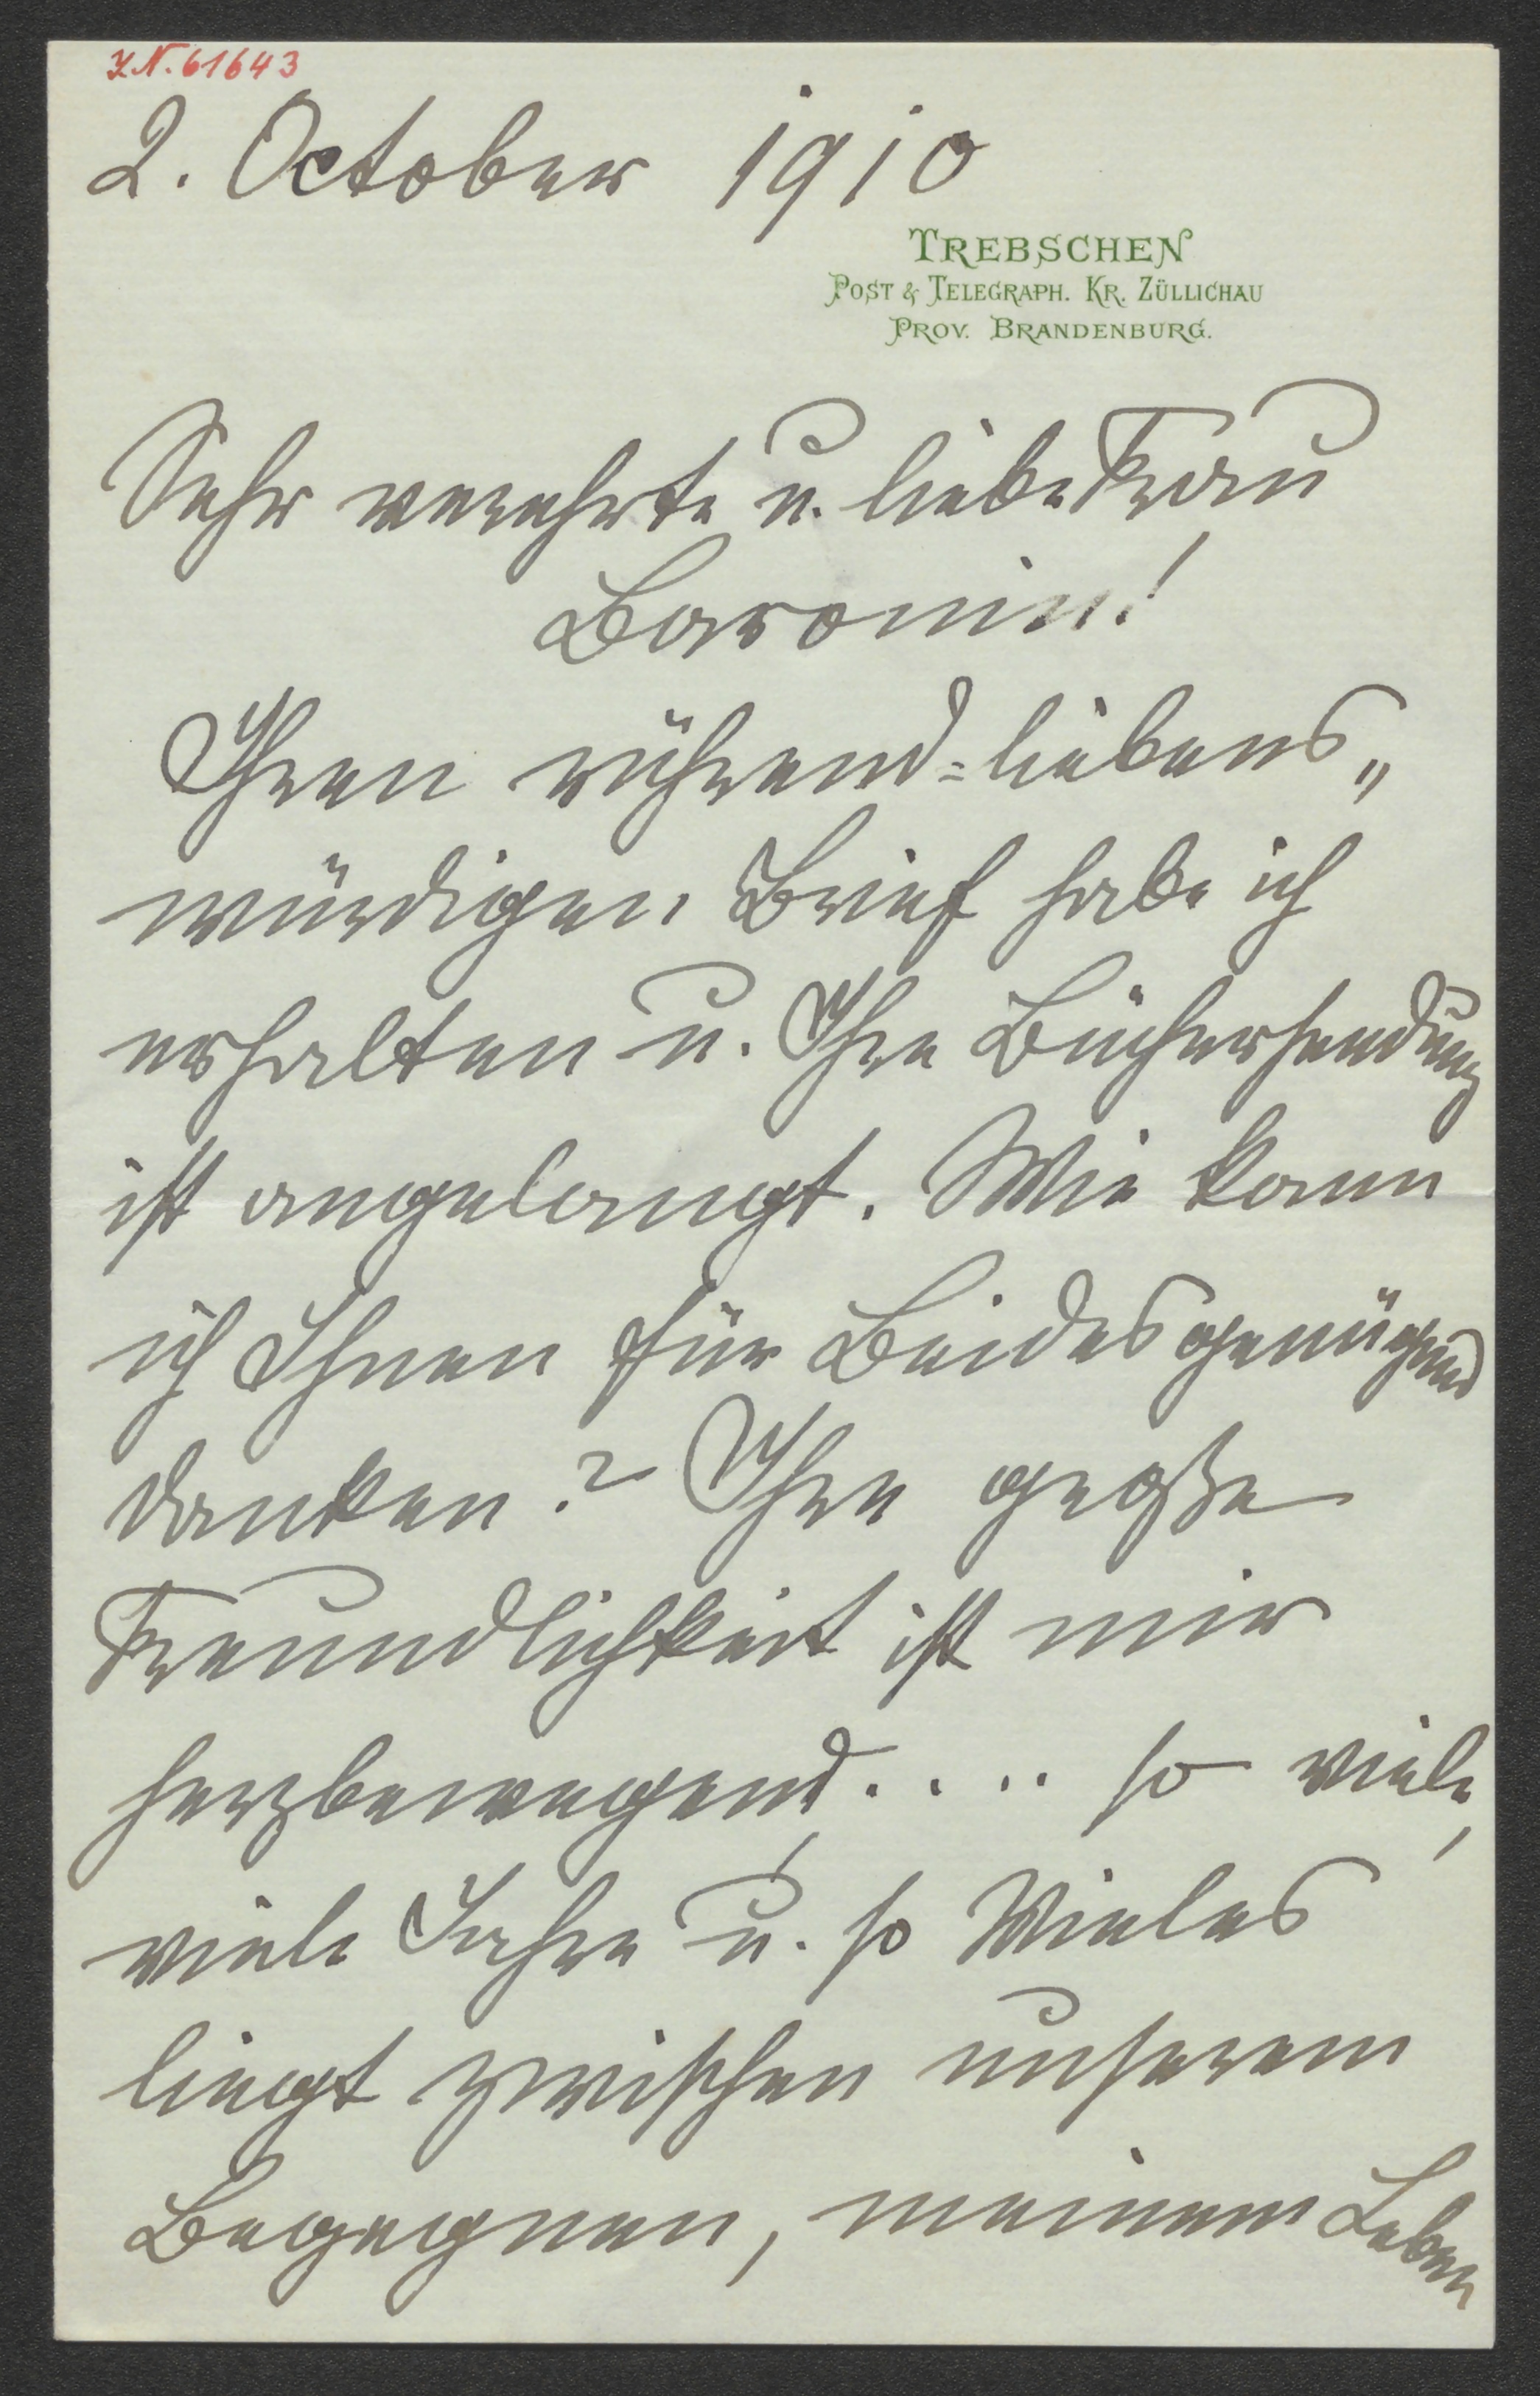 I.N. 61643
2. October 1910
TREBSCHEN
POST & TELEGRAPH. KR. ZÜLLICHAU
PROV. BRANDENBURG.
Sehr verehrte u. liebe Frau
Baronin!
Ihren rührend=liebens„
würdigen Brief habe ich
erhalten u. Ihre Büchersendung
ist angelangt. Wie kann
ich Ihnen für Beides genügend
danken? Ihre große
Freundlichkeit ist mir
herzbewegend.... so viele,
viele Jahre u. so Vieles
liegt zwischen unserem
Begegnen, meinem Leben